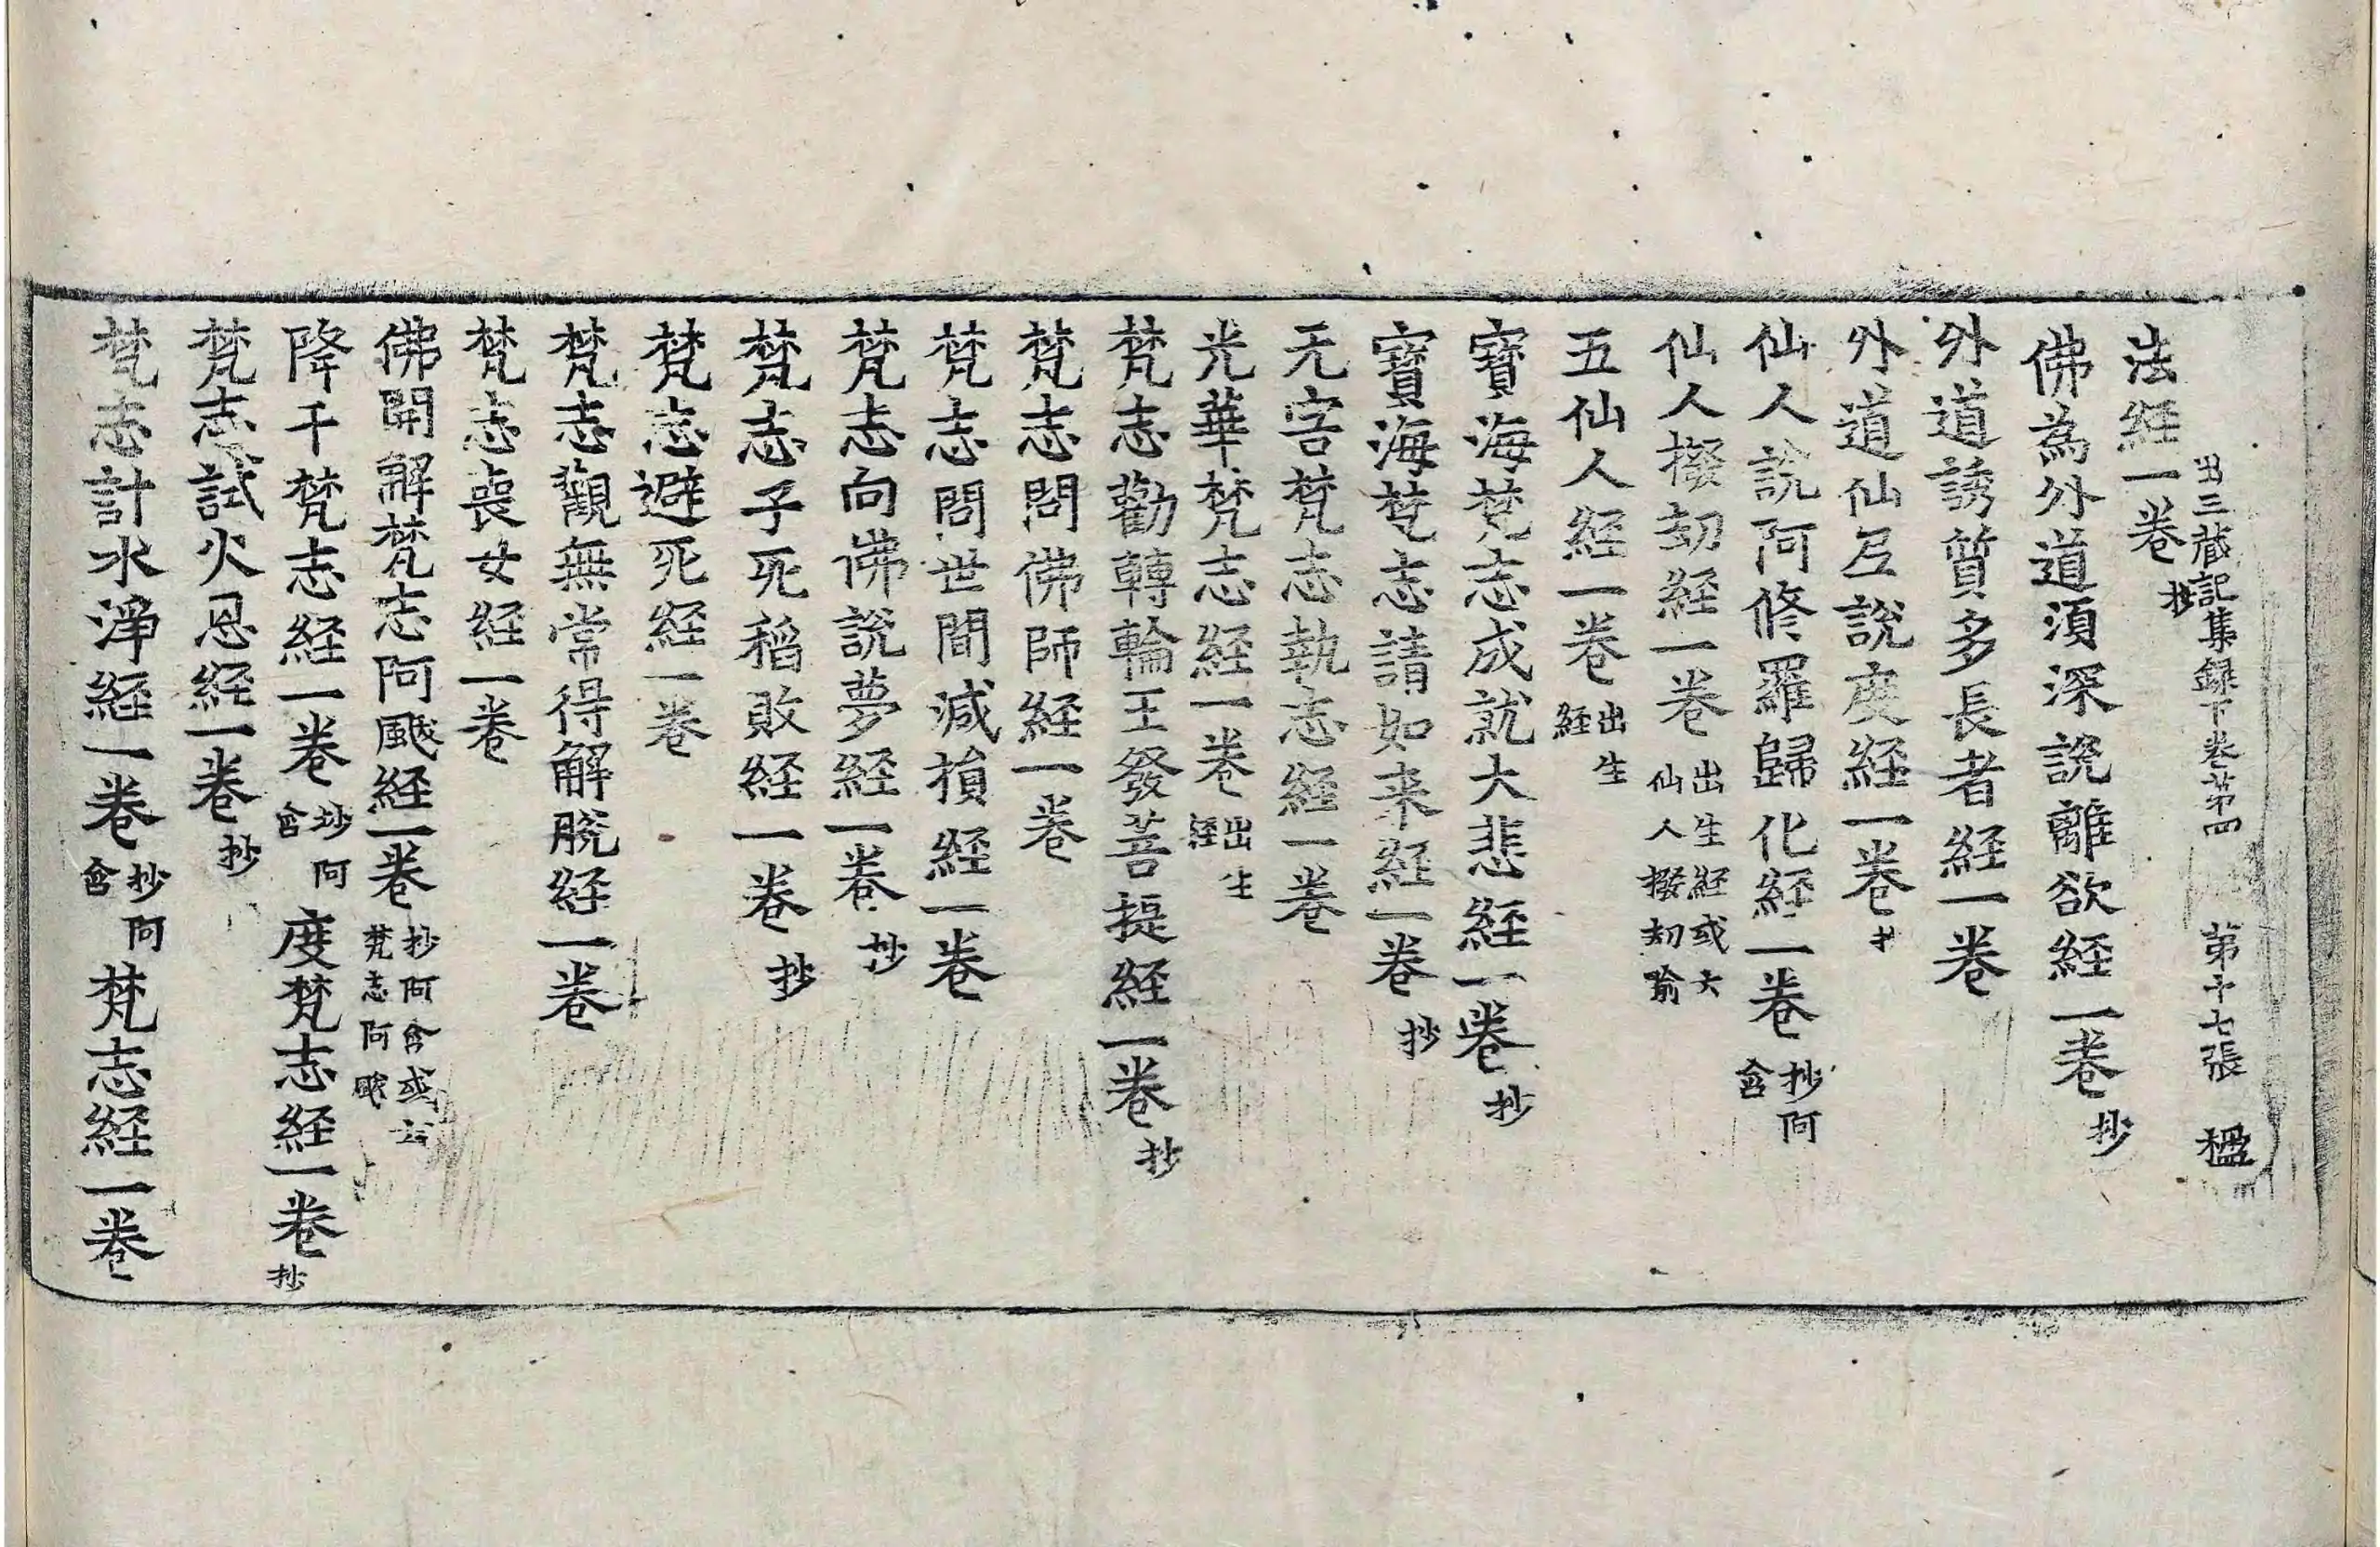 出三藏記集録下卷苐四 第十七張 楹
法経一卷抄
佛為外道湏深說離欲経一卷抄
外道誘質多長者経一卷
外道仙互說度経一卷
仙人說阿修羅歸化経一卷抄阿含
仙人撥刧経一卷出生経或云仙人撥刧喻
五仙人経一卷出生経
寶海梵志成就大悲経一卷抄
寶海梵志請如来経一卷抄
无害梵志執志経一卷
光華梵志経一卷出生経
梵志勸轉輪王發菩提経一卷抄
梵志問佛師経一卷
梵志問世間減損経一卷
梵志向佛說夢経一卷抄
梵志子死稻敗経一卷抄
梵志避死経一卷
梵志觀無常得解脫経一卷
梵志喪女経一卷
佛開解梵志阿颰経一卷抄阿含或云梵志阿颰
降千梵志経一卷抄阿含 度梵志経一卷抄
梵志試火恩経一卷抄
梵志計水淨経一卷抄阿含 梵志経一卷